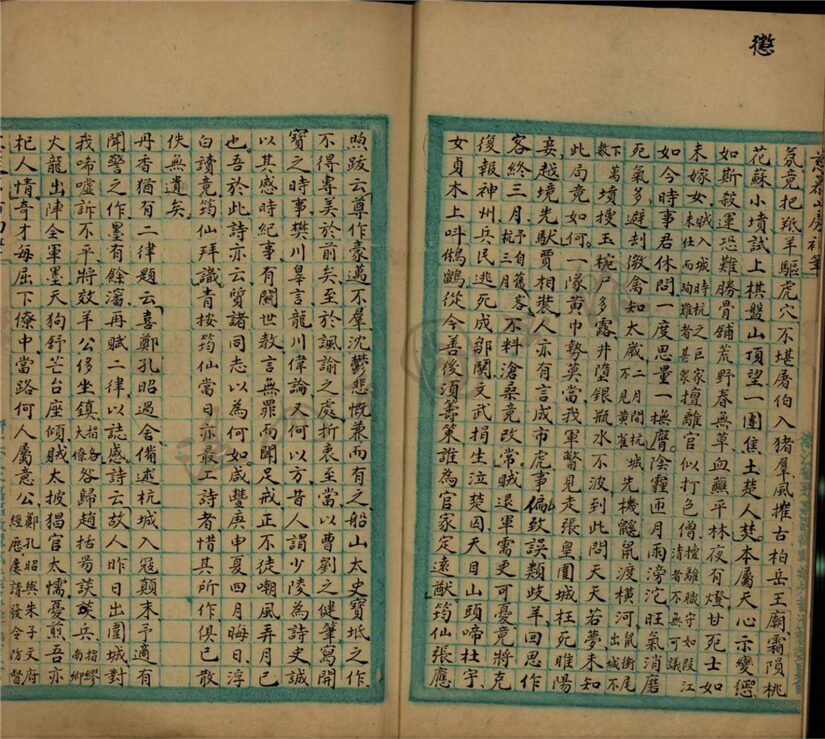 懲
氛竟把羝羊驅虎穴不堪屠伯入豬羣風摧古柏岳王廟霜隕桃
花蘇小墳試上棋盤山頂望一團焦土楚人焚本屬天心示變懲
如斯殺運恐難勝骨鋪荒野春無草血蘸平林夜有燈甘死士如
未嫁女賊入城時杭之巨家未仕而殉難者甚眾擅離官似打色僧擅離職守如段江清者不無可議
如今時事君休問一度思量一撫膺陰霾匝月雨滂沱旺氣消磨
死氣多避刦微禽知太歲二月間杭城不見黃雀先機鼷鼠渡橫河鼠銜尾出城不
下數萬墳搜玉椀尸多露井墮銀瓶水不波到此問天天若夢未知
此局竟如何一隊黃巾勢莫當我軍瞥見走張皇圍城枉死睢陽
妾越境先馱賈相裝人亦有言成市虎事偏致誤類歧羊回思作
客終三月予自三月杭舊客不料滄桑竟改常賊退軍需更可憂竟將克
復報神州兵民逃死成鄒鬨文武捐生泣楚囚天目山頭啼杜宇
女貞木上叫鵂鶹從今善後須籌策誰為官家定遠猷筠仙張應
煦跋云尊作豪邁不羣沈鬱悲慨兼而有之船山太史寶坻之作
不得專美於前矣至於諷諭之處折衷至當以曹劉之健筆寫開
寶之時事樊川皋言龍川偉論又何以方昔人謂少陵為詩史誠
以其感時紀事有關世教言無罪而聞足戒正不徒嘲風弄月已
也吾於此詩亦云質諸同志以為何如咸豐庚申夏四月晦日浮
白讀竟筠仙拜識青按筠仙當日亦最工詩者惜其所作俱已散
佚無遺矣
丹香猶有二律題云喜鄭孔昭過舍備述杭城入寇顛末予適有
聞警之作墨有餘瀋再賦二律以誌感詩云故人昨日出圍城對
我啼噓訴不平將效羊公侈坐鎮指各大僚谷歸趙括易談兵指繆南卿
火龍出陣全軍墨天狗舒芒台座傾賊太披猖官太懦憂煎吾亦
杞人情奇才每屈下僚中當路何人屬意公鄭孔昭與朱子文府經歷屢請發令防督